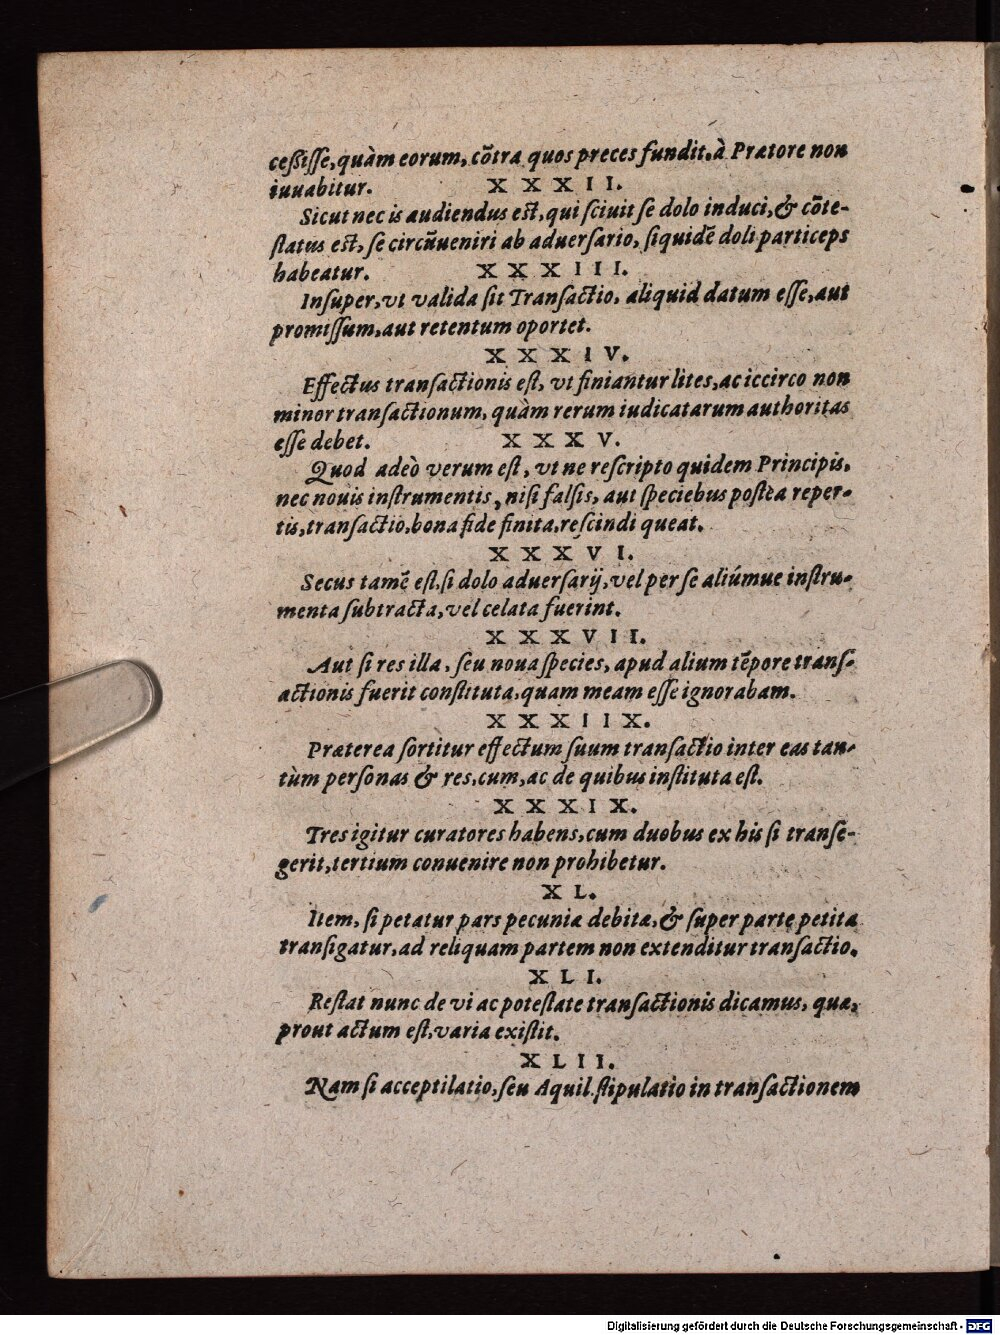 ceßiſſe, quàm eorum, cōtra quos preces fundit, à Prætore non
iuuabitur. XXXII.
Sicut nec is audiendus est, qui ſciuit ſe dolo induci, & cōte-
ſtatus est, ſe circūueniri ab aduerſario, ſiquidē doli particeps
habeatur. XXXIII.
Inſuper, vt valida ſit Tranſactio, aliquid datum eſſe, aut
promiſſum, aut retentum oportet.
XXXIV.
Effectus tranſactionis eſt, vt finiantur lites, ac iccirco non
minor tranſactionum, quàm rerum iudicatarum authoritas
eſſe debet. XXXV.
Quod adeò verum eſt, vt ne reſcripto quidem Principis,
nec nouis inſtrumentis, niſi falſis, aut ſpeciebus poſtea reper-
tis, tranſactio, bona fide finita, reſcindi queat.
XXXVI.
Secus tamē eſt, ſi dolo aduerſarij, vel per ſe aliúmue inſtru-
menta ſubtracta, vel celata fuerint.
XXXVII.
Aut ſi res illa, ſeu noua ſpecies, apud alium tēpore tranſ-
actionis fuerit conſtituta, quam meam eſſe ignorabam.
XXXIIX.
Præterea ſortitur effectum ſuum tranſactio inter eas tan-
tùm perſonas & res, cum, ac de quibus inſtituta eſt.
XXXIX.
Tres igitur curatores habens, cum duobus ex his ſi tranſe-
gerit, tertium conuenire non prohibetur.
XL.
Item, ſi petatur pars pecuniæ debitæ, & ſuper parte petita
tranſigatur, ad reliquam partem non extenditur tranſactio.
XLI.
Reſtat nunc de vi ac poteſtate tranſactionis dicamus, quæ,
prout actum eſt, varia exiſtit.
XLII.
Nam ſi acceptilatio, ſeu Aquil. ſtipulatio in tranſactionem
Digitalisierung gefördert durch die Deutsche Forschungsgemeinschaft - DFG